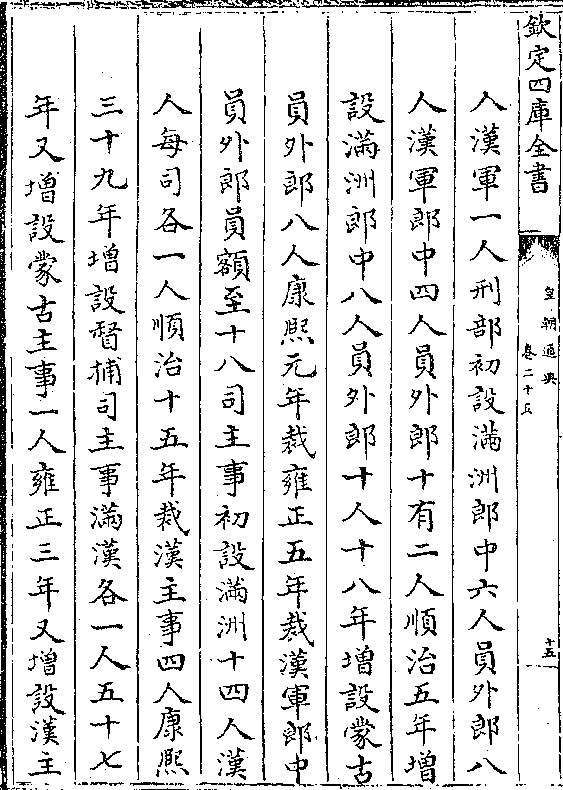 欽定四庫全書
皇朝通典
卷二十五
十五
人漢軍一人刑部初設滿洲郎中六人員外郎八
人漢軍郎中四人員外郎十有二人順治五年增
設滿洲郎中八人員外郎十人十八年增設蒙古
員外郎八人康熙元年裁雍正五年裁漢軍郎中
員外郎員額至十八司主事初設滿洲十四人漢
人每司各一人順治十五年裁漢主事四人康熙
三十九年增設督捕司主事滿漢各一人五十七
年又增設蒙古主事一人雍正三年又增設漢主